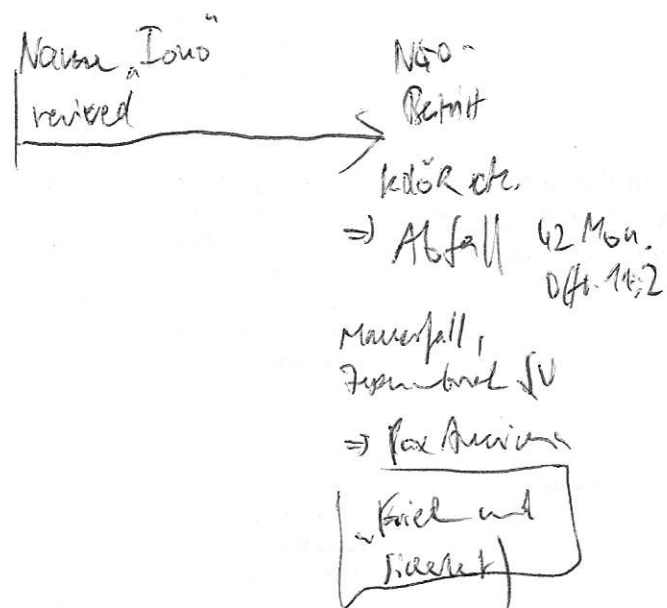 Name „Iono“
revised
NGO-
Beitritt
KdöR etc.
=> Abfall 42 Mon.
Offb. 11,2
Mauerfall,
Zusammenbruch SU
=> Pax Americana
„Friede und
Sicherheit